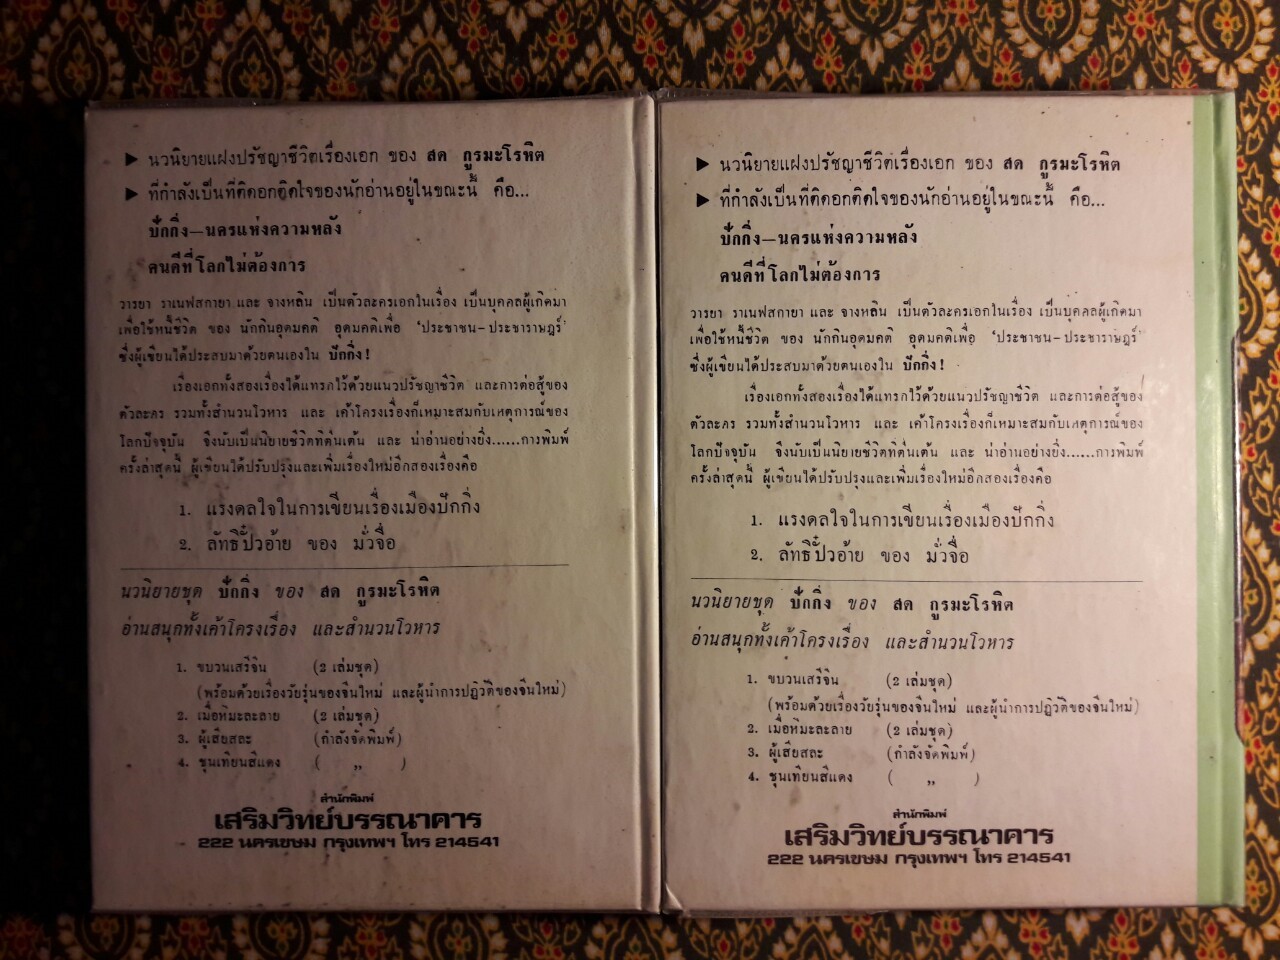 ▶ นวนิยายแฝงปรัชญาชีวิตเรื่องเอก ของ สด กูรมะโรหิต
▶ ที่กำลังเป็นที่ติดอกติดใจของนักอ่านอยู่ในขณะนี้ คือ...
ปักกิ่ง—นครแห่งความหลัง
คนดีที่โลกไม่ต้องการ
วารยา ราเนฟสกายา และ จางหลิน เป็นตัวละครเอกในเรื่อง เป็นบุคคลผู้เกิดมา
เพื่อใช้หนี้ชีวิต ของ นักกินอุดมคติ อุดมคติเพื่อ 'ประชาชน-ประชาราษฎร์'
ซึ่งผู้เขียนได้ประสบมาด้วยตนเองใน ปักกิ่ง!
เรื่องเอกทั้งสองเรื่องได้แทรกไว้ด้วยแนวปรัชญาชีวิต และการต่อสู้ของ
ตัวละคร รวมทั้งสำนวนโวหาร และ เค้าโครงเรื่องก็เหมาะสมกับเหตุการณ์ของ
โลกปัจจุบัน จึงนับเป็นนิยายชีวิตที่ตื่นเต้น และ น่าอ่านอย่างยิ่ง......การพิมพ์
ครั้งล่าสุดนี้ ผู้เขียนได้ปรับปรุงและเพิ่มเรื่องใหม่อีกสองเรื่องคือ
1. แรงดลใจในการเขียนเรื่องเมืองปักกิ่ง
2. ลัทธิปั๋วอ้าย ของ มั่วจื่อ
นวนิยายชุด ปักกิ่ง ของ สด กูรมะโรหิต
อ่านสนุกทั้งเค้าโครงเรื่อง และสำนวนโวหาร
1. ขบวนเสรีจีน (2 เล่มชุด)
(พร้อมด้วยเรื่องวัยรุ่นของจีนใหม่ และผู้นำการปฏิวัติของจีนใหม่)
2. เมื่อหิมะละลาย (2 เล่มชุด)
3. ผู้เสียสละ (กำลังจัดพิมพ์)
4. ชุนเทียนสีแดง ( ,, )
สำนักพิมพ์
เสริมวิทย์บรรณาคาร
222 นครเขษม กรุงเทพฯ โทร 214541
▶ นวนิยายแฝงปรัชญาชีวิตเรื่องเอก ของ สด กูรมะโรหิต
▶ ที่กำลังเป็นที่ติดอกติดใจของนักอ่านอยู่ในขณะนี้ คือ...
ปักกิ่ง—นครแห่งความหลัง
คนดีที่โลกไม่ต้องการ
วารยา ราเนฟสกายา และ จางหลิน เป็นตัวละครเอกในเรื่อง เป็นบุคคลผู้เกิดมา
เพื่อใช้หนี้ชีวิต ของ นักกินอุดมคติ อุดมคติเพื่อ 'ประชาชน-ประชาราษฎร์'
ซึ่งผู้เขียนได้ประสบมาด้วยตนเองใน ปักกิ่ง!
เรื่องเอกทั้งสองเรื่องได้แทรกไว้ด้วยแนวปรัชญาชีวิต และการต่อสู้ของ
ตัวละคร รวมทั้งสำนวนโวหาร และ เค้าโครงเรื่องก็เหมาะสมกับเหตุการณ์ของ
โลกปัจจุบัน จึงนับเป็นนิยายชีวิตที่ตื่นเต้น และ น่าอ่านอย่างยิ่ง......การพิมพ์
ครั้งล่าสุดนี้ ผู้เขียนได้ปรับปรุงและเพิ่มเรื่องใหม่อีกสองเรื่องคือ
1. แรงดลใจในการเขียนเรื่องเมืองปักกิ่ง
2. ลัทธิปั๋วอ้าย ของ มั่วจื่อ
นวนิยายชุด ปักกิ่ง ของ สด กูรมะโรหิต
อ่านสนุกทั้งเค้าโครงเรื่อง และสำนวนโวหาร
1. ขบวนเสรีจีน (2 เล่มชุด)
(พร้อมด้วยเรื่องวัยรุ่นของจีนใหม่ และผู้นำการปฏิวัติของจีนใหม่)
2. เมื่อหิมะละลาย (2 เล่มชุด)
3. ผู้เสียสละ (กำลังจัดพิมพ์)
4. ชุนเทียนสีแดง ( ,, )
สำนักพิมพ์
เสริมวิทย์บรรณาคาร
222 นครเขษม กรุงเทพฯ โทร 214541